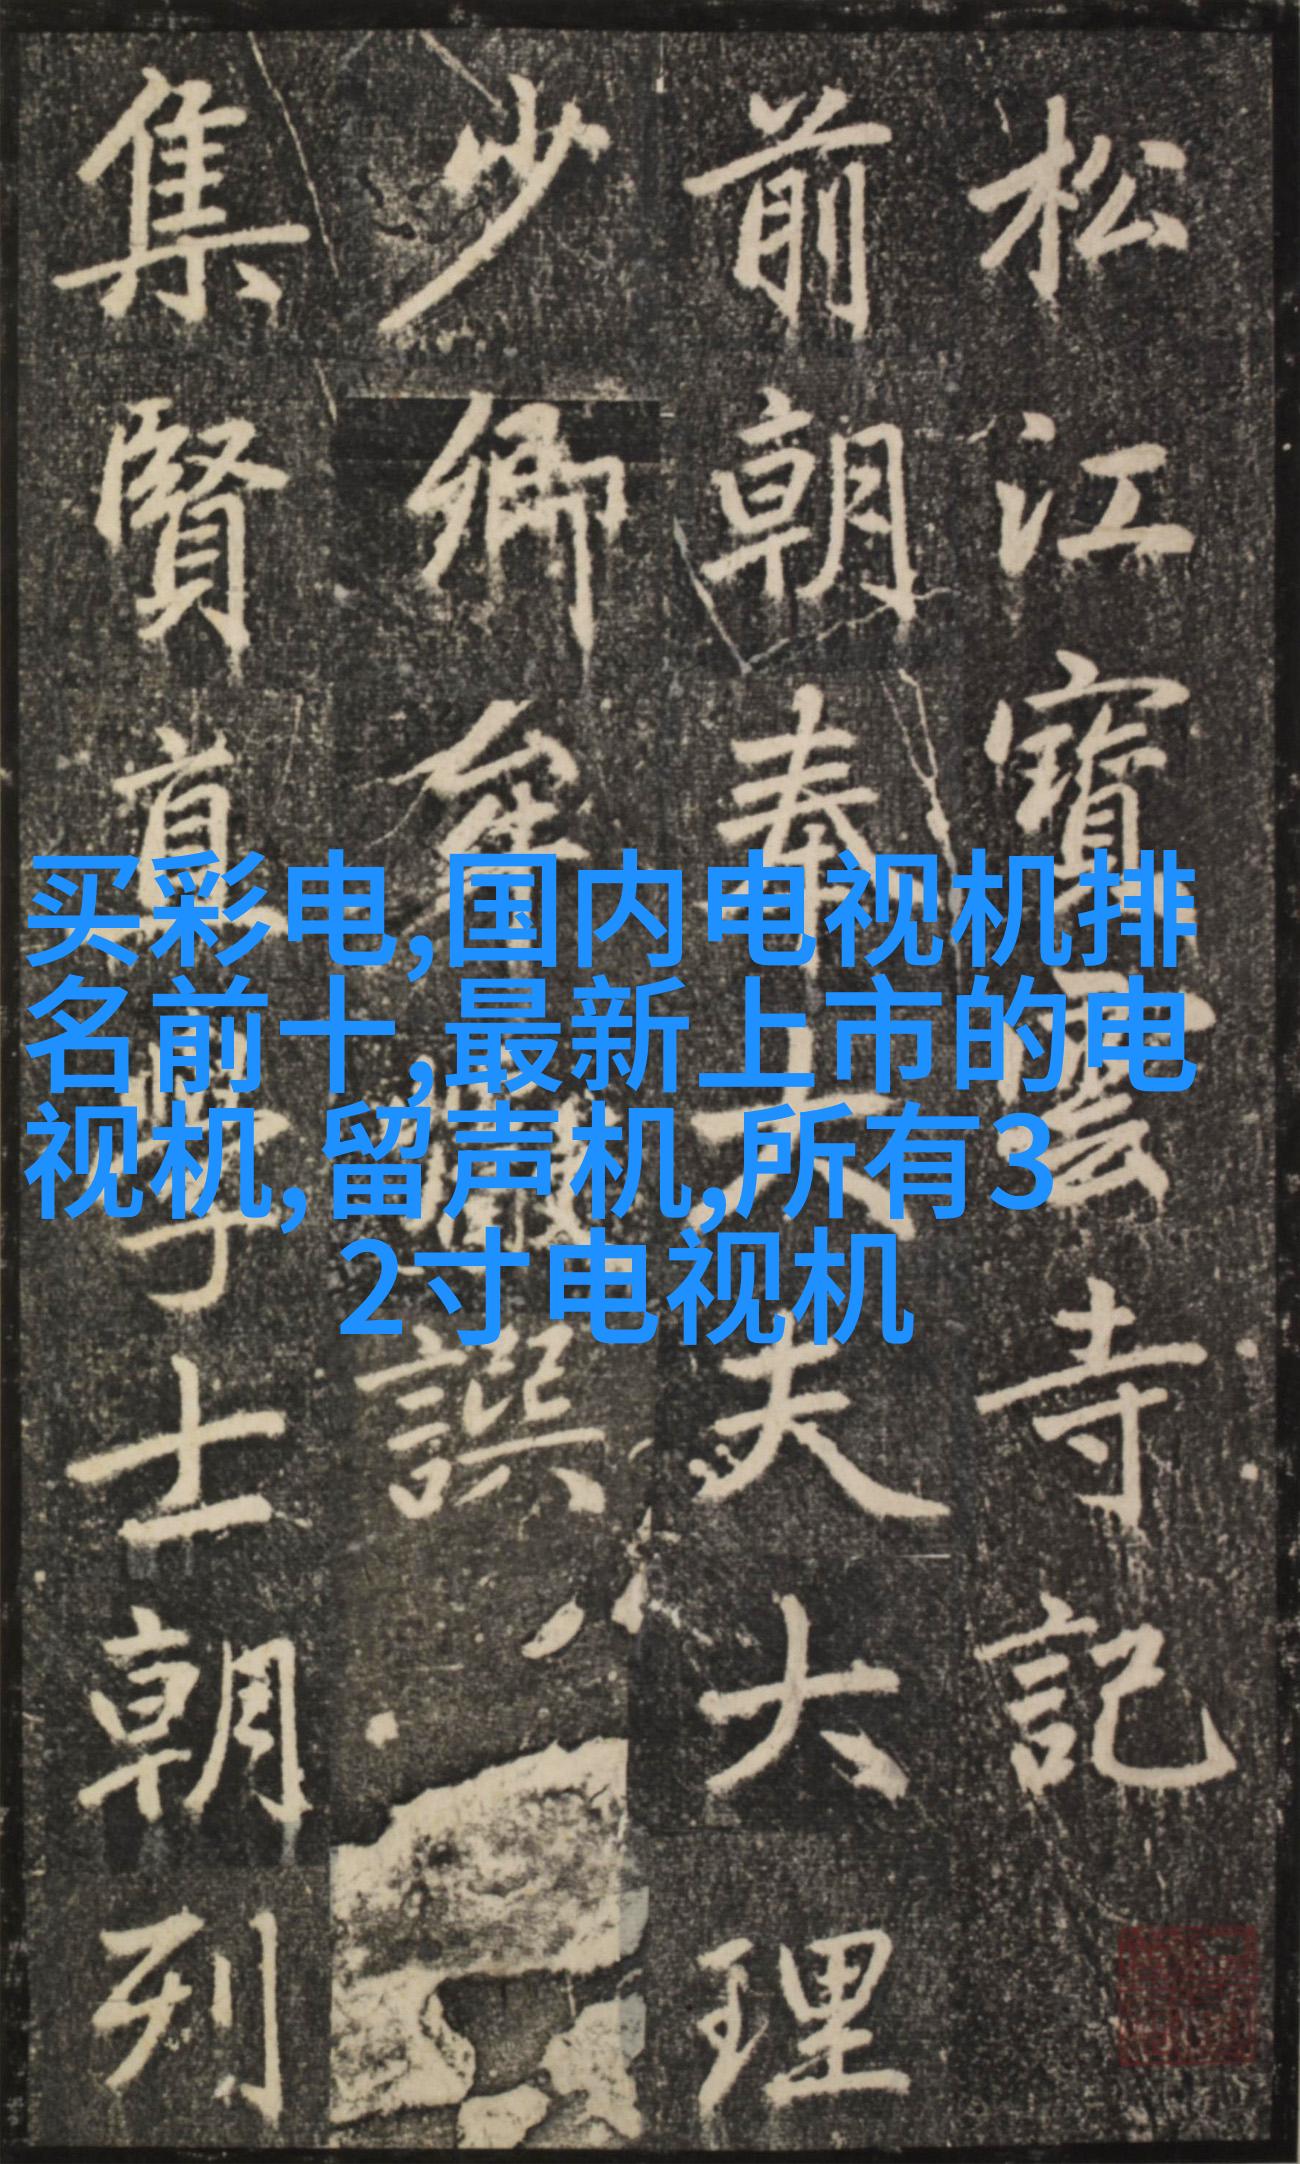 松江寶雲寺記
前朝奉大夫大理
少卿牟巘譔
集賢直學士朝列
买彩电,国内电视机排
名前十,最新上市的电
视机,留声机,所有3
2寸电视机